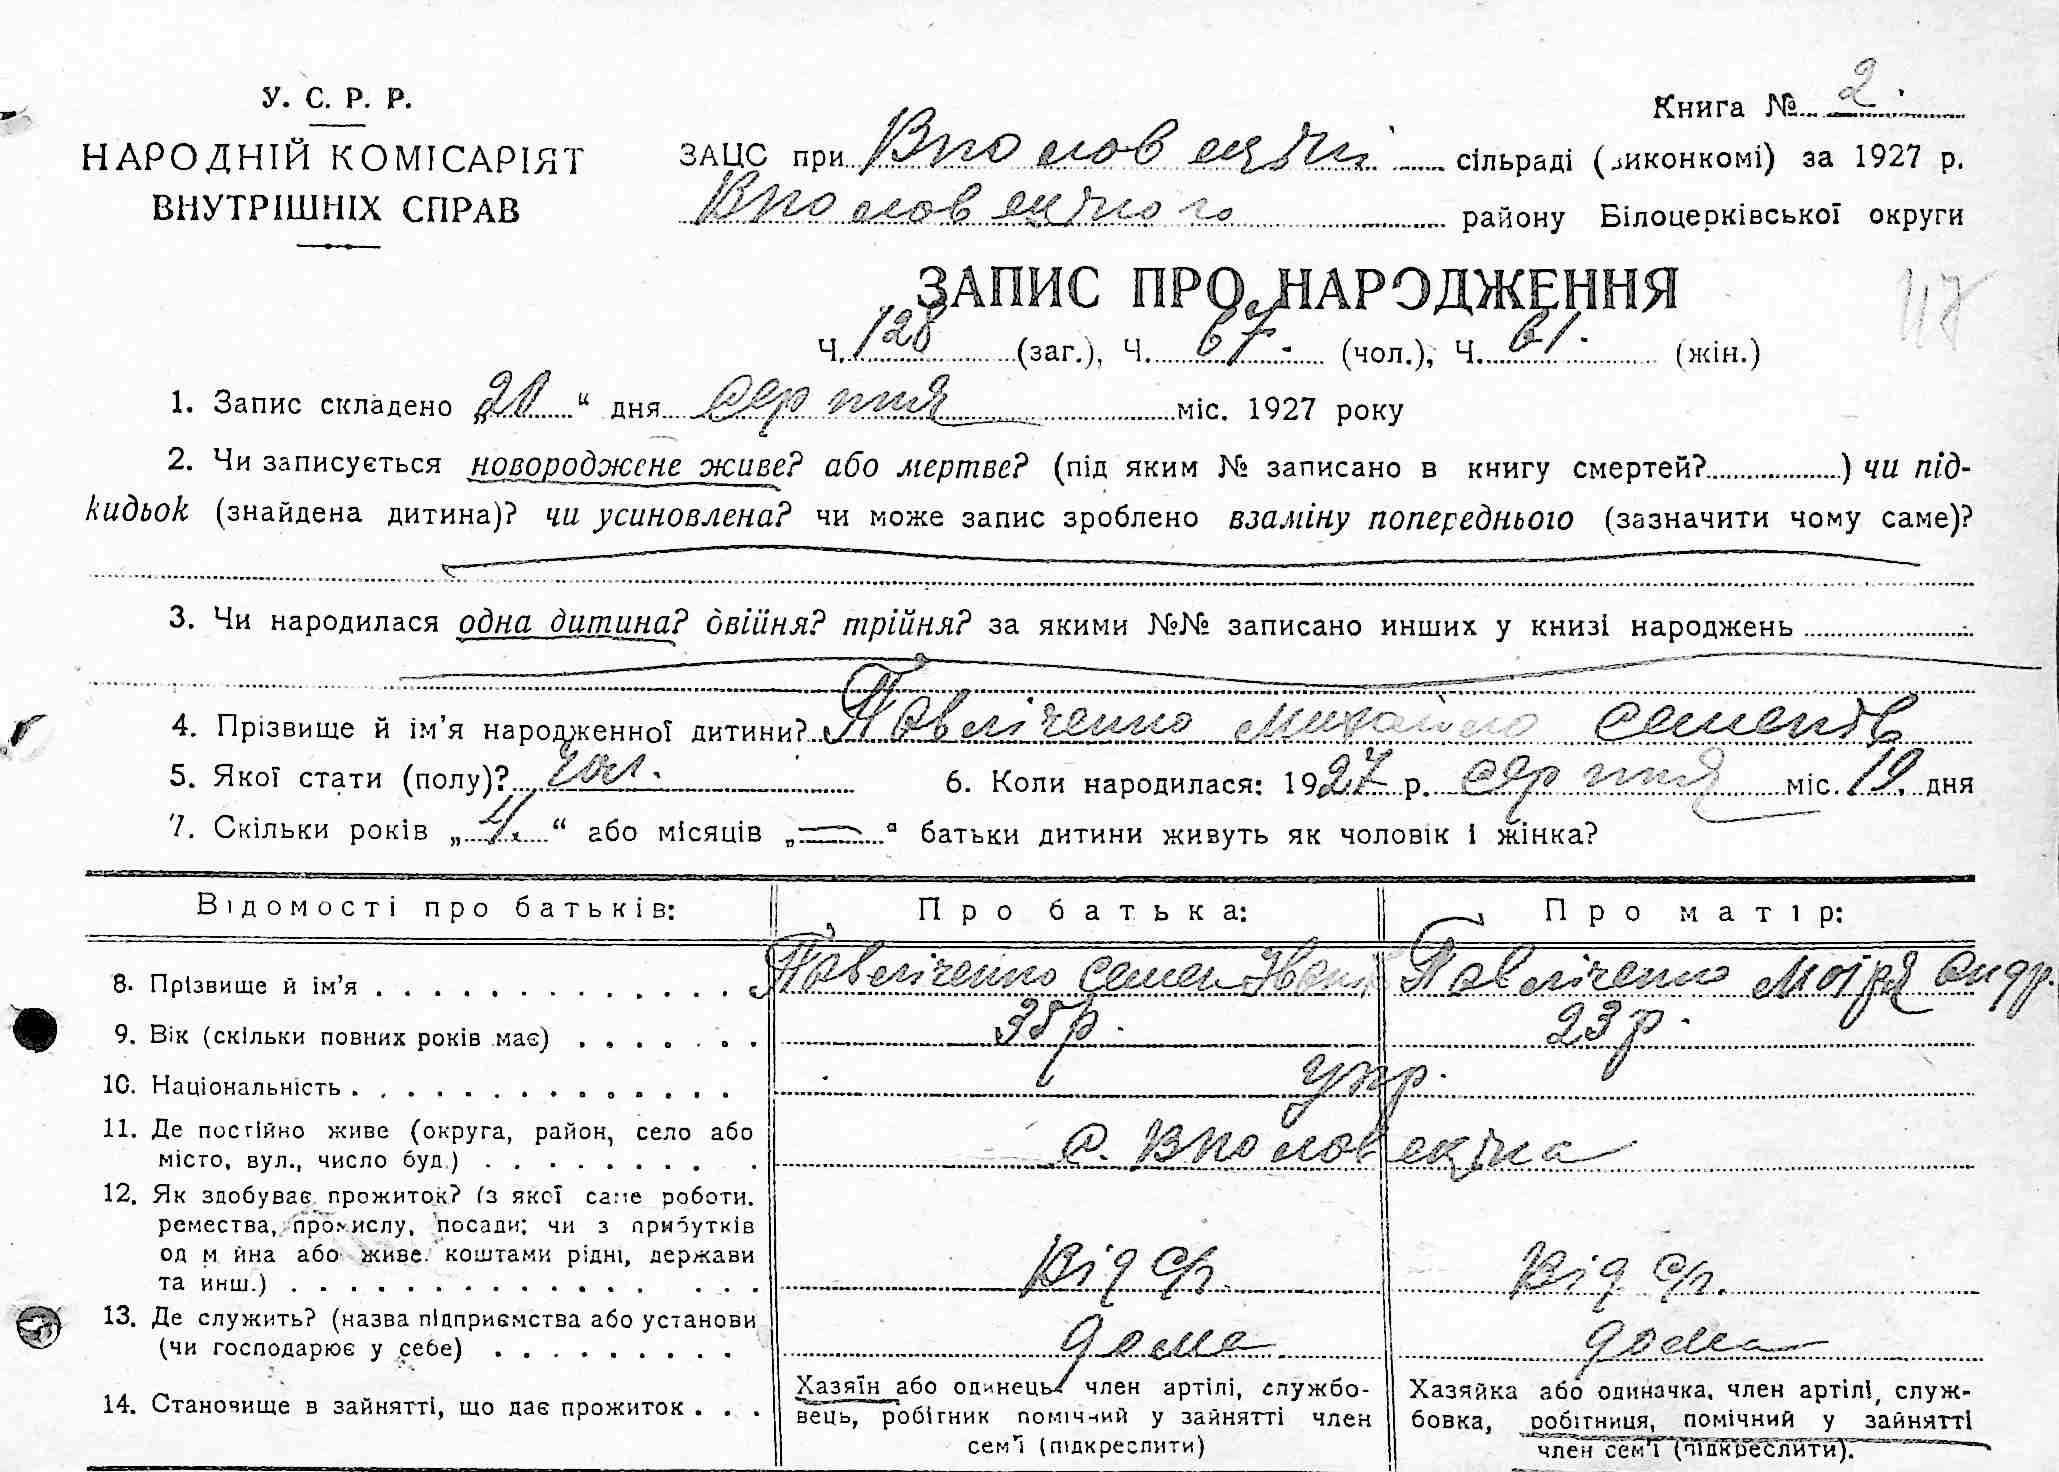 У. С. Р. Р.
НАРОДНІЙ КОМІСАРІЯТ
ВНУТРІШНІХ СПРАВ
Книга № 2.
ЗАЦС при Вполовецчкі сільраді (виконкомі) за 1927 р.
району Білоцерківської округи
ЗАПИС ПРО НАРОДЖЕННЯ
Ч. 128 (заг.), Ч. 67. (чол.), Ч. 61. (жін.)
47
1. Запис складено „20“ дня серпня міс. 1927 року
2. Чи записується новороджене живе? або мертве? (під яким № записано в книгу смертей?) чи під-
кидьок (знайдена дитина)? чи усиновлена? чи може запис зроблено взаміну попереднього (зазначити чому саме)?
3. Чи народилася одна дитина? двійня? трійня? за якими №№ записано инших у книзі народжень
4. Прізвище й ім'я народженної дитини? Павліченко Михайло Семенів
5. Якої стати (полу)? чол. 6. Коли народилася: 1927 р. серпня міс. 19. дня
7. Скільки років „4.“ або місяців „—“ батьки дитини живуть як чоловік і жінка?
Відомості про батьків: Про батька: Про матір:
8. Прізвище й ім'я Павліченко Семен Іванів Павліченко Андр.
9. Вік (скільки повних років має) 35р. 23р.
10. Національність укр.
11. Де постійно живе (округа, район, село або
місто, вул., число буд.) с. Вполовецчка
12. Як здобуває прожиток? (з якої саме роботи,
ремества, промислу, посади; чи з прибутків
од майна або живе коштами рідні, держави
та инш.) Від с/г. Від с/г.
13. Де служить? (назва підприємства або установи
(чи господарює у себе) дома дома
14. Становище в зайнятті, що дає прожиток
Хазяїн або одинець член артілі, службо-
вець, робітник помічний у зайнятті член
сем'ї (підкреслити)
Хазяйка або одиначка, член артілі, служ-
бовка, робітниця, помічний у зайнятті
член сем'ї (підкреслити).